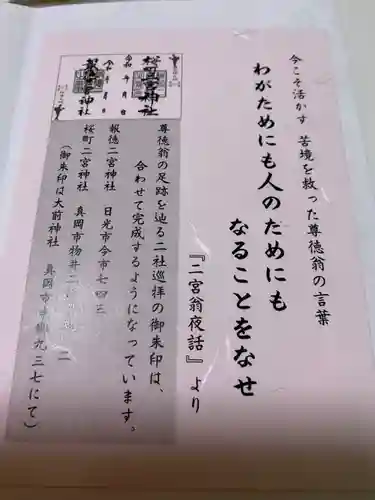 今こそ活かす 苦境を救った尊徳翁の言葉
わがためにも人のためにも
なることをなせ
『二宮翁夜話』より
桜町二宮神社
令和 年 月 日
報徳二宮神社
令和 年 月 日
尊徳翁の足跡を辿る二社巡拝の御朱印は、
合わせて完成するようになっています。
報徳二宮神社 日光市今市七四三
桜町二宮神社 真岡市物井
(御朱印は大前神社 真岡市東郷九三七にて)